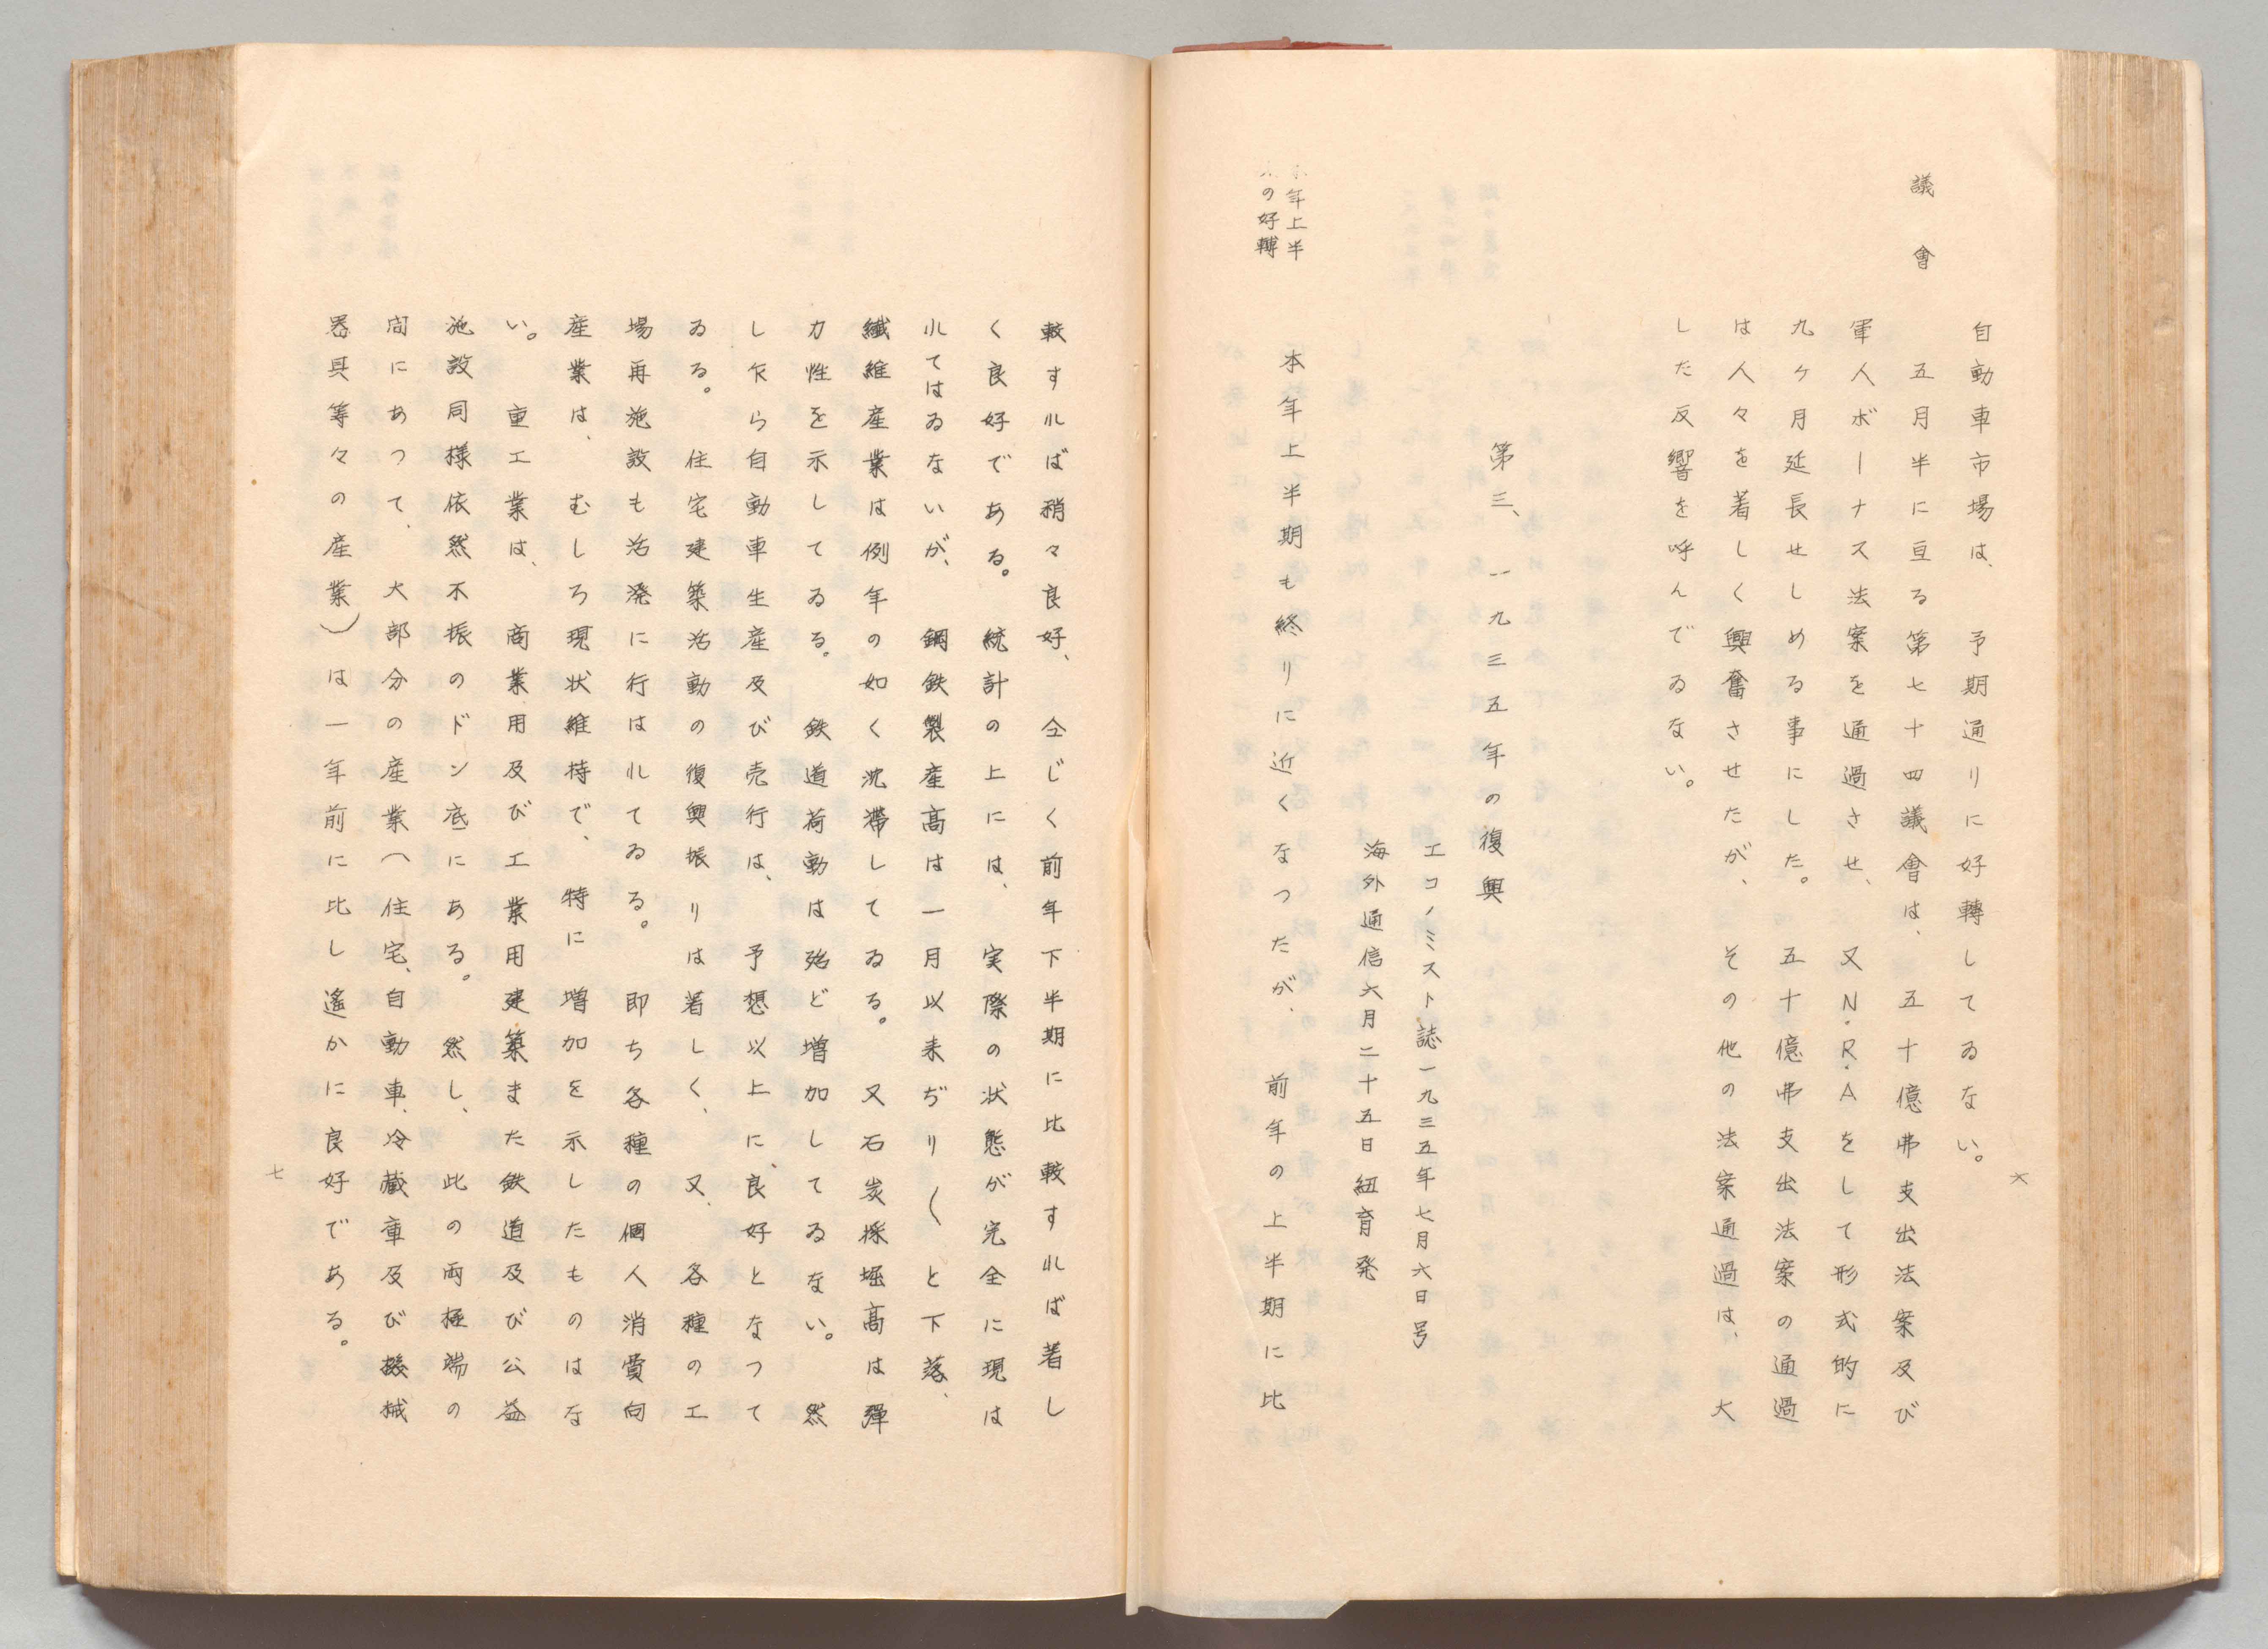 六
自動車市場は、予期通りに好轉してゐない。
議會
五月半に亘る第七十四議會は、五十億弗支出法案及び
軍人ボーナス法案を通過させ、又N.R.Aをして形式的に
九ヶ月延長せしめる事にした。五十億弗支出法案の通過
は人々を着しく興奮させたが、その他の法案通過は、大
した反響を呼んでゐない。
第三、一九三五年の復興
エコノミスト誌一九三五年七月六日号
海外通信六月二十五日紐育発
年上半
の好轉
本年上半期も終りに近くなつたが、前年の上半期に比
較すれば稍々良好、仝じく前年下半期に比較すれば着し
く良好である。統計の上には、実際の状態が完全に現は
れてはゐないが、鋼鉄製産高は一月以来ぢり〱と下落、
繊維産業は例年の如く沈滞してゐる。又石炭採堀高は彈
力性を示してゐる。鉄道荷動は殆ど増加してゐない。然
し乍ら自動車生産及び売行は、予想以上に、良好となつて
ゐる。住宅建築活動の復興振りは着しく、又、各種の工
場再施設も活溌に行はれてゐる。即ち各種の個人消費向
産業は、むしろ現状維持で、特に増加を示したものはな
い。重工業は、商業用及び工業用建築また鉄道及び公益
施設同様依然不振のドン底にある。然し、此の両極端の
間にあつて、大部分の産業(住宅、自動車、冷蔵庫及び機械
器具等々の産業)は一年前に比し遙かに良好である。
七